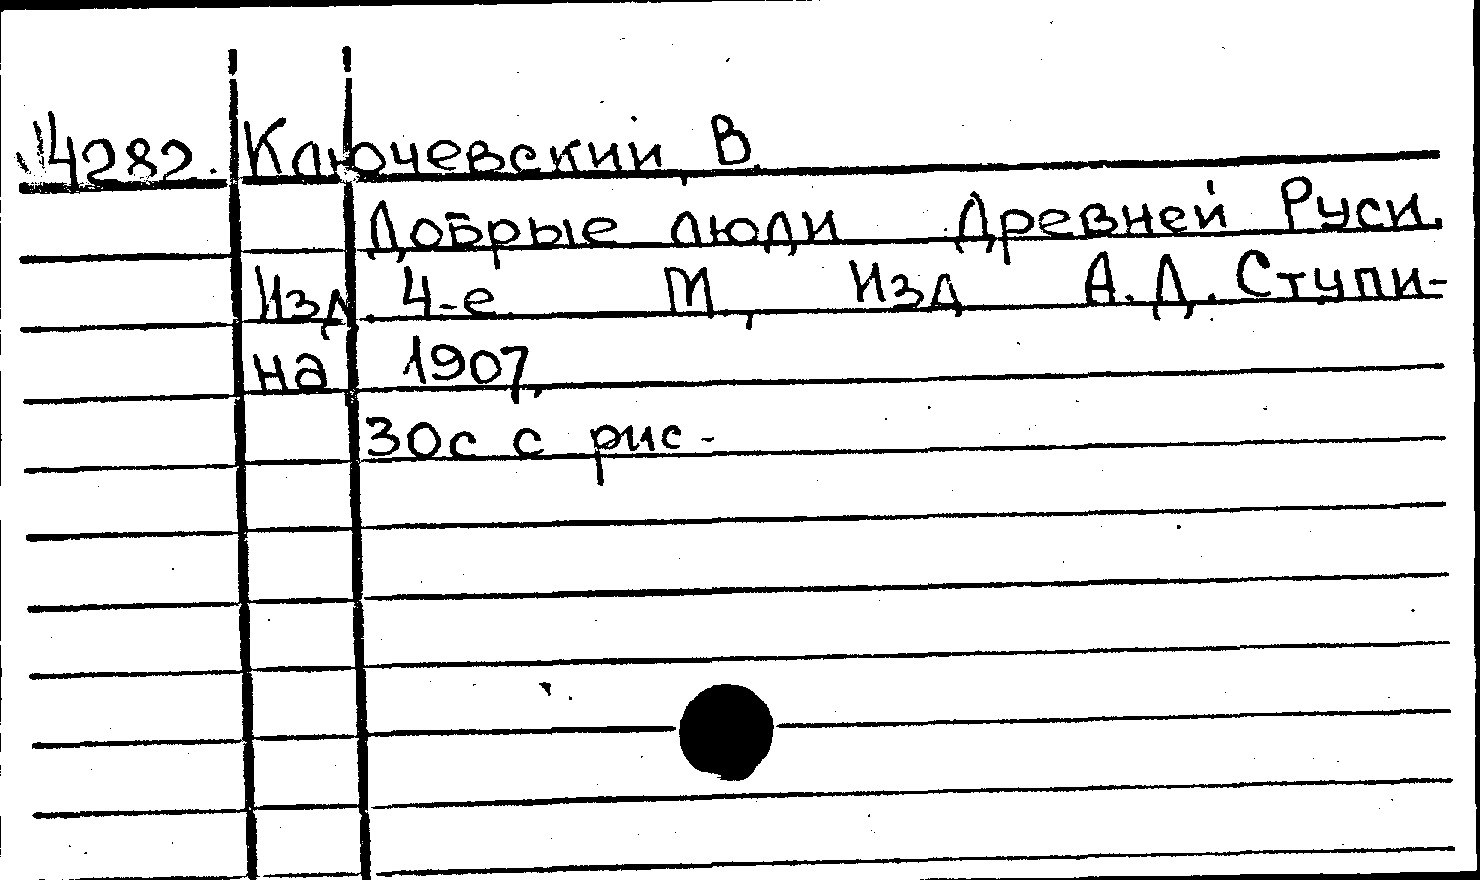 4282. Ключевский, В.
Добрые люди Древней Руси.
Изд. 4-е. М, Изд А.Д. Ступи-
на 1907,
30с с рис-